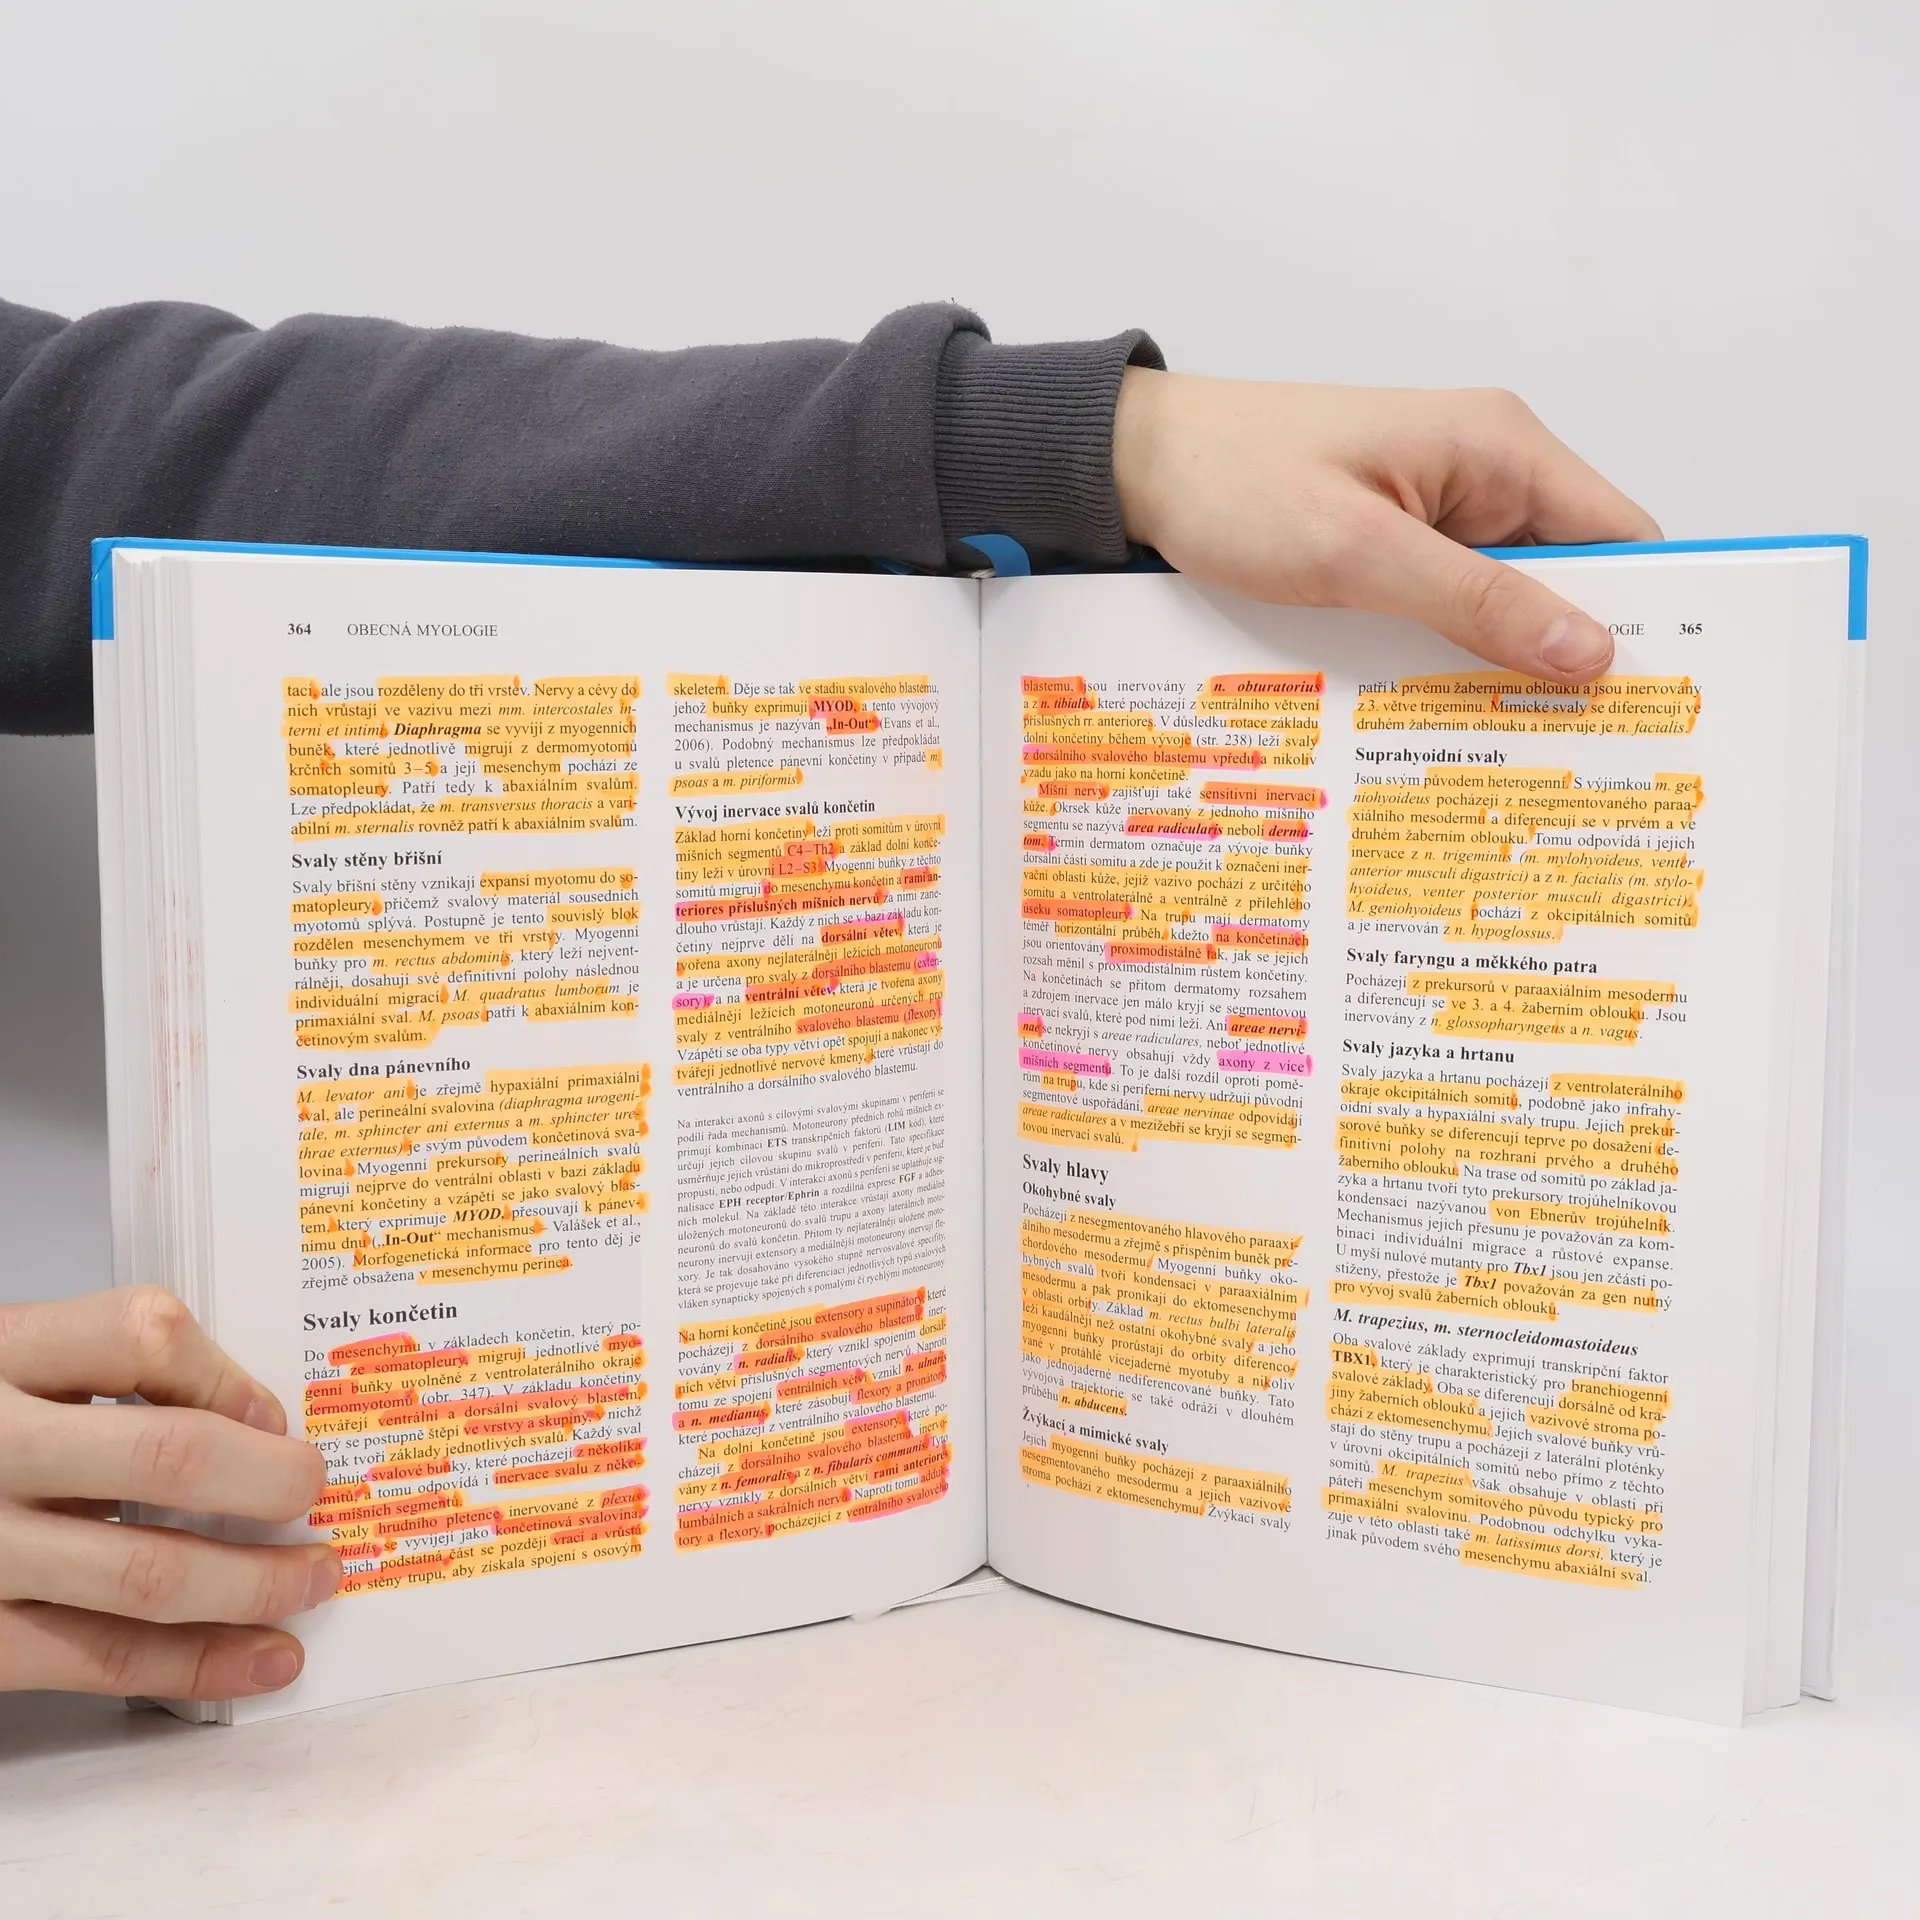 364 OBECNÁ MYOLOGIE
tací, ale jsou rozděleny do tří vrstev. Nervy a cévy do
nich vrůstají ve vazivu mezi mm. intercostales in-
terni et intimi. Diaphragma se vyvíjí z myogenních
buněk, které jednotlivě migrují z dermomyotomů
krčních somitů 3–5 a její mesenchym pochází ze
somatopleury. Patří tedy k abaxiálním svalům.
Lze předpokládat, že m. transversus thoracis a vari-
abilní m. sternalis rovněž patří k abaxiálním svalům.
Svaly stěny břišní
Svaly břišní stěny vznikají expansí myotomu do so-
matopleury, přičemž svalový materiál sousedních
myotomů splývá. Postupně je tento souvislý blok
rozdělen mesenchymem ve tři vrstvy. Myogenní
buňky pro m. rectus abdominis, který leží nejvent-
rálněji, dosahují své definitivní polohy následnou
individuální migrací. M. quadratus lumborum je
primaxiální sval. M. psoas patří k abaxiálním kon-
četinovým svalům.
Svaly dna pánevního
M. levator ani je zřejmě hypaxiální primaxiální
sval, ale perineální svalovina (diaphragma urogeni-
tale, m. sphincter ani externus a m. sphincter ure-
thrae externus) je svým původem končetinová sva-
lovina. Myogenní prekursory perineálních svalů
migrují nejprve do ventrální oblasti v bazi základu
pánevní končetiny a vzápětí se jako svalový blas-
tem, který exprimuje MYOD, přesouvají k pánev-
nímu dnu („In-Out“ mechanismus – Valášek et al.,
2005). Morfogenetická informace pro tento děj je
zřejmě obsažena v mesenchymu perinea.
Svaly končetin
Do mesenchymu v základech končetin, který po-
chází ze somatopleury, migrují jednotlivé myo-
genní buňky uvolněné z ventrolaterálního okraje
dermomyotomů (obr. 347). V základu končetiny
vytvářejí ventrální a dorsální svalový blastem,
který se postupně štěpí ve vrstvy a skupiny, v nichž
pak tvoří základy jednotlivých svalů. Každý sval
sahuje svalové buňky, které pocházejí z několika
somitů, a tomu odpovídá i inervace svalu z něko-
lika míšních segmentů.
Svaly hrudního pletence, inervované z plexus
chialis se vyvíjejí jako končetinová svalovina,
ejich podstatná část se později vrací a vrůstá
do stěny trupu, aby získala spojení s osovým
skeletem. Děje se tak ve stadiu svalového blastemu,
jehož buňky exprimují MYOD, a tento vývojový
mechanismus je nazýván „In-Out“ (Evans et al.,
2006). Podobný mechanismus lze předpokládat
u svalů pletence pánevní končetiny v případě m.
psoas a m. piriformis.
Vývoj inervace svalů končetin
Základ horní končetiny leží proti somitům v úrovni
míšních segmentů C4–Th2 a základ dolní konče-
tiny leží v úrovni L2–S3. Myogenní buňky z těchto
somitů migrují do mesenchymu končetin a rami an-
teriores příslušných míšních nervů za nimi zane-
dlouho vrůstají. Každý z nich se v bazi základu kon-
četiny nejprve dělí na dorsální větev, která je
tvořena axony nejlaterálněji ležících motoneuronů
a je určena pro svaly z dorsálního blastemu (exten-
sory), a na ventrální větev, která je tvořena axony
mediálněji ležících motoneuronů určených pro
svaly z ventrálního svalového blastemu (flexory).
Vzápětí se oba typy větví opět spojují a nakonec vy-
tvářejí jednotlivé nervové kmeny, které vrůstají do
ventrálního a dorsálního svalového blastemu.
Na interakci axonů s cílovými svalovými skupinami v periferii se
podílí řada mechanismů. Motoneurony předních rohů míšních ex-
primují kombinaci ETS transkripčních faktorů (LIM kód), které
určují jejich cílovou skupinu svalů v periferii. Tato specifikace
usměrňuje jejich vrůstání do mikroprostředí v periferii, které je buď
propustí, nebo odpudí. V interakci axonů s periferií se uplatňuje sig-
nalisace EPH receptor/Ephrin a rozdílná exprese FGF a adhes-
ních molekul. Na základě této interakce vrůstají axony mediálně
uložených motoneuronů do svalů trupu a axony laterálních moto-
neuronů do svalů končetin. Přitom ty nejlaterálněji uložené moto-
neurony inervují extensory a mediálnější motoneurony inervují fle-
xory. Je tak dosahováno vysokého stupně nervosvalové specifity,
která se projevuje také při diferenciaci jednotlivých typů svalových
vláken synapticky spojených s pomalými či rychlými motoneurony.
Na horní končetině jsou extensory a supinátory, které
pocházejí z dorsálního svalového blastemu, iner-
vovány z n. radialis, který vznikl spojením dorsál-
ních větví příslušných segmentových nervů. Naproti
tomu ze spojení ventrálních větví vznikl n. ulnaris
a n. medianus, které zásobují flexory a pronátory,
které pocházejí z ventrálního svalového blastemu.
Na dolní končetině jsou extensory, které po-
cházejí z dorsálního svalového blastemu, inervo-
vány z n. femoralis a z n. fibularis communis. Tyto
nervy vznikly z dorsálních větví rami anteriores
lumbálních a sakrálních nervů. Naproti tomu adduk-
tory a flexory, pocházející z ventrálního svalového
OGIE 365
blastemu, jsou inervovány z n. obturatorius
a z n. tibialis, které pocházejí z ventrálního větvení
příslušných rr. anteriores. V důsledku rotace základu
dolní končetiny během vývoje (str. 238) leží svaly
z dorsálního svalového blastemu vpředu a nikoliv
vzadu jako na horní končetině.
Míšní nervy zajišťují také sensitivní inervaci
kůže. Okrsek kůže inervovaný z jednoho míšního
segmentu se nazývá area radicularis neboli derma-
tom. Termín dermatom označuje za vývoje buňky
dorsální části somitu a zde je použit k označení iner-
vační oblasti kůže, jejíž vazivo pochází z určitého
somitu a ventrolaterálně a ventrálně z přilehlého
úseku somatopleury. Na trupu mají dermatomy
téměř horizontální průběh, kdežto na končetinách
jsou orientovány proximodistálně tak, jak se jejich
rozsah měnil s proximodistálním růstem končetiny.
Na končetinách se přitom dermatomy rozsahem
a zdrojem inervace jen málo kryjí se segmentovou
inervací svalů, které pod nimi leží. Ani areae nervi-
nae se nekryjí s areae radiculares, neboť jednotlivé
končetinové nervy obsahují vždy axony z více
míšních segmentů. To je další rozdíl oproti pomě-
rům na trupu, kde si periferní nervy udržují původní
segmentové uspořádání, areae nervinae odpovídají
areae radiculares a v mezižebří se kryjí se segmen-
tovou inervací svalů.
Svaly hlavy
Okohybné svaly
Pocházejí z nesegmentovaného hlavového paraxi-
álního mesodermu a zřejmě s přispěním buněk pre-
chordového mesodermu. Myogenní buňky oko-
hybných svalů tvoří kondensaci v paraaxiálním
mesodermu a pak pronikají do ektomesenchymu
v oblasti orbity. Základ m. rectus bulbi lateralis
leží kaudálněji než ostatní okohybné svaly a jeho
myogenní buňky prorůstají do orbity diferenco-
vané v protáhlé vícejaderné myotuby a nikoliv
jako jednojaderné nediferencované buňky. Tato
vývojová trajektorie se také odráží v dlouhém
průběhu n. abducens.
Žvýkací a mimické svaly
Jejich myogenní buňky pocházejí z paraaxiálního
nesegmentovaného mesodermu a jejich vazivové
stroma pochází z ektomesenchymu. Žvýkací svaly
patří k prvému žabernímu oblouku a jsou inervovány
z 3. větve trigeminu. Mimické svaly se diferencují ve
druhém žaberním oblouku a inervuje je n. facialis.
Suprahyoidní svaly
Jsou svým původem heterogenní. S výjimkou m. ge-
niohyoideus pocházejí z nesegmentovaného paraa-
xiálního mesodermu a diferencují se v prvém a ve
druhém žaberním oblouku. Tomu odpovídá i jejich
inervace z n. trigeminus (m. mylohyoideus, venter
anterior musculi digastrici) a z n. facialis (m. stylo-
hyoideus, venter posterior musculi digastrici).
M. geniohyoideus pochází z okcipitálních somitů
a je inervován z n. hypoglossus.
Svaly faryngu a měkkého patra
Pocházejí z prekursorů v paraaxiálním mesodermu
a diferencují se ve 3. a 4. žaberním oblouku. Jsou
inervovány z n. glossopharyngeus a n. vagus.
Svaly jazyka a hrtanu
Svaly jazyka a hrtanu pocházejí z ventrolaterálního
okraje okcipitálních somitů, podobně jako infrahy-
oidní svaly a hypaxiální svaly trupu. Jejich prekur-
sorové buňky se diferencují teprve po dosažení de-
finitivní polohy na rozhraní prvého a druhého
žaberního oblouku. Na trase od somitů po základ ja-
zyka a hrtanu tvoří tyto prekursory trojúhelníkovou
kondensaci nazývanou von Ebnerův trojúhelník.
Mechanismus jejich přesunu je považován za kom-
binaci individuální migrace a růstové expanse.
U myší nulové mutanty pro Tbx1 jsou jen zčásti po-
stiženy, přestože je Tbx1 považován za gen nutný
pro vývoj svalů žaberních oblouků.
M. trapezius, m. sternocleidomastoideus
Oba svalové základy exprimují transkripční faktor
TBX1, který je charakteristický pro branchiogenní
svalové základy. Oba se diferencují dorsálně od kra-
jiny žaberních oblouků a jejich vazivové stroma po-
chází z ektomesenchymu. Jejich svalové buňky vrů-
stají do stěny trupu a pocházejí z laterální ploténky
v úrovni okcipitálních somitů nebo přímo z těchto
somitů. M. trapezius však obsahuje v oblasti při
páteři mesenchym somitového původu typický pro
primaxiální svalovinu. Podobnou odchylku vyka-
zuje v této oblasti také m. latissimus dorsi, který je
jinak původem svého mesenchymu abaxiální sval.